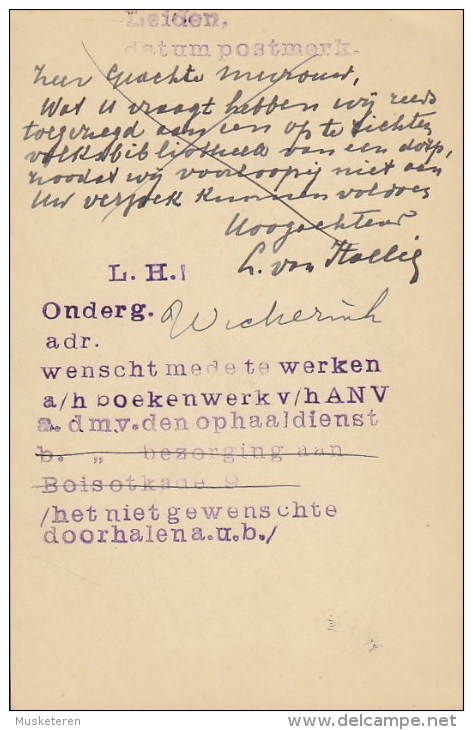 Leiden,
datum postmerk.
Zeer Geachte Mevrouw,
Wat U vraagt hebben wij reeds
toegezegd aan een op te richten
volksbibliotheek van een dorp,
zoodat wij voorloopig niet aan
Uw verzoek kunnen voldoen
Hoogachtend
L. van
L. H.!
Onderg. Wickerink
adr.
wenscht mede te werken
a/h boekenwerk v/h ANV
a. dmv. den ophaaldienst
b. „ bezorging aan
Boisotkade 9
/het niet gewenschte
doorhalen a.u.b./
Musketeren
www.delcampe.net